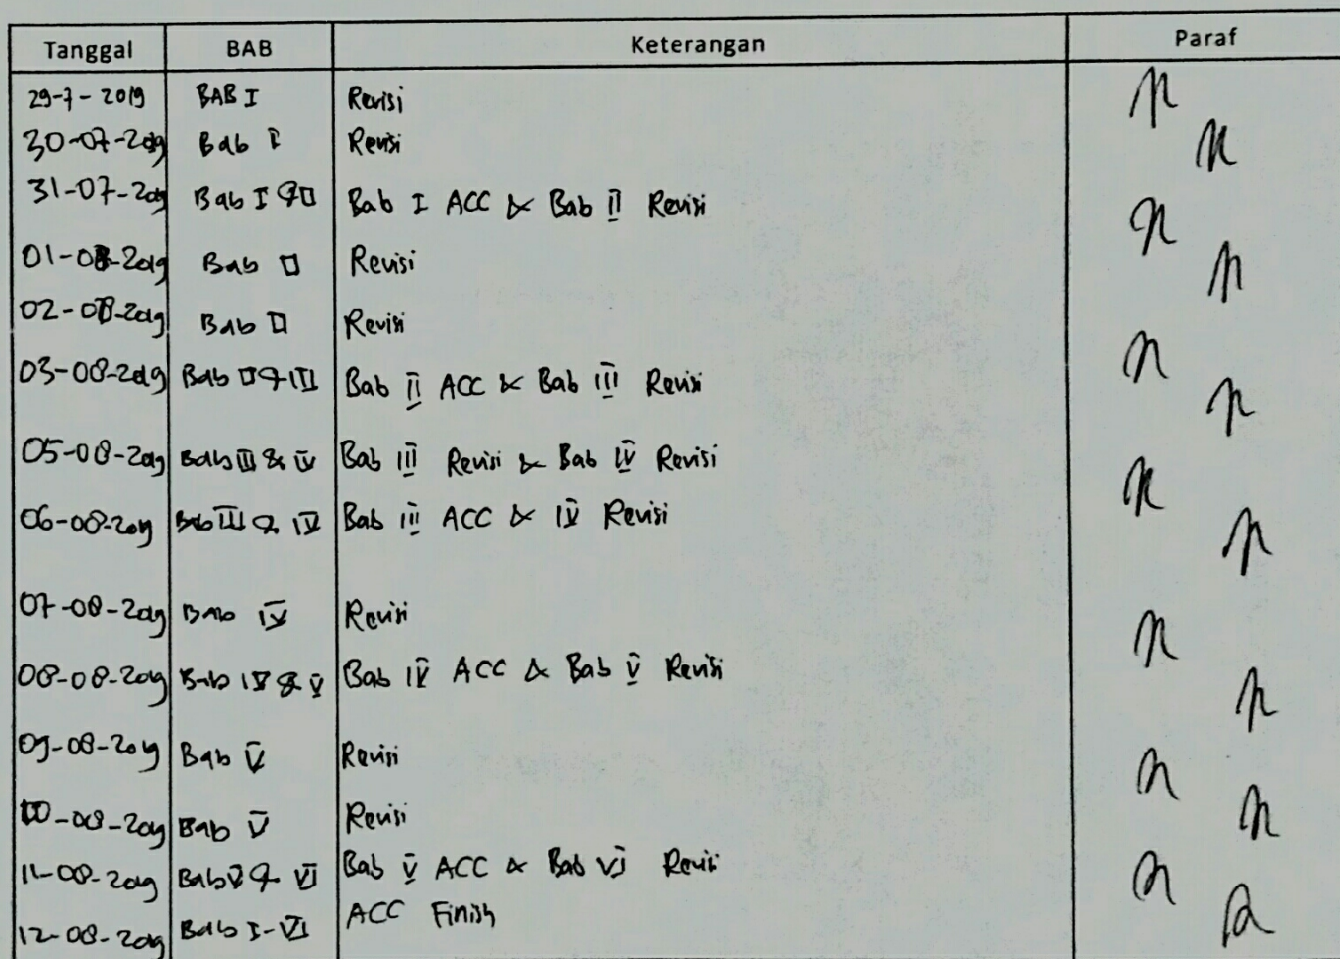 Tanggal BAB Keterangan Paraf
29-7-2019 BAB I Revisi
30-07-2019 Bab I Revisi
31-07-2019 Bab I & II Bab I ACC & Bab II Revisi
01-08-2019 Bab II Revisi
02-08-2019 Bab II Revisi
03-08-2019 Bab II & III Bab II ACC & Bab III Revisi
05-08-2019 Bab III & IV Bab III Revisi & Bab IV Revisi
06-08-2019 Bab III & IV Bab III ACC & IV Revisi
07-08-2019 Bab IV Revisi
08-08-2019 Bab IV & V Bab IV ACC & Bab V Revisi
09-08-2019 Bab V Revisi
10-08-2019 Bab V Revisi
11-08-2019 Bab V & VI Bab V ACC & Bab VI Revisi
12-08-2019 Bab I-VI ACC Finish